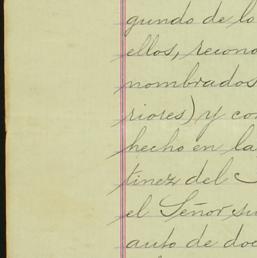 gundo de lo
ellos, recono
nombrados
riores) y con
hecho en la
tinez del
el Señor su
auto de doc